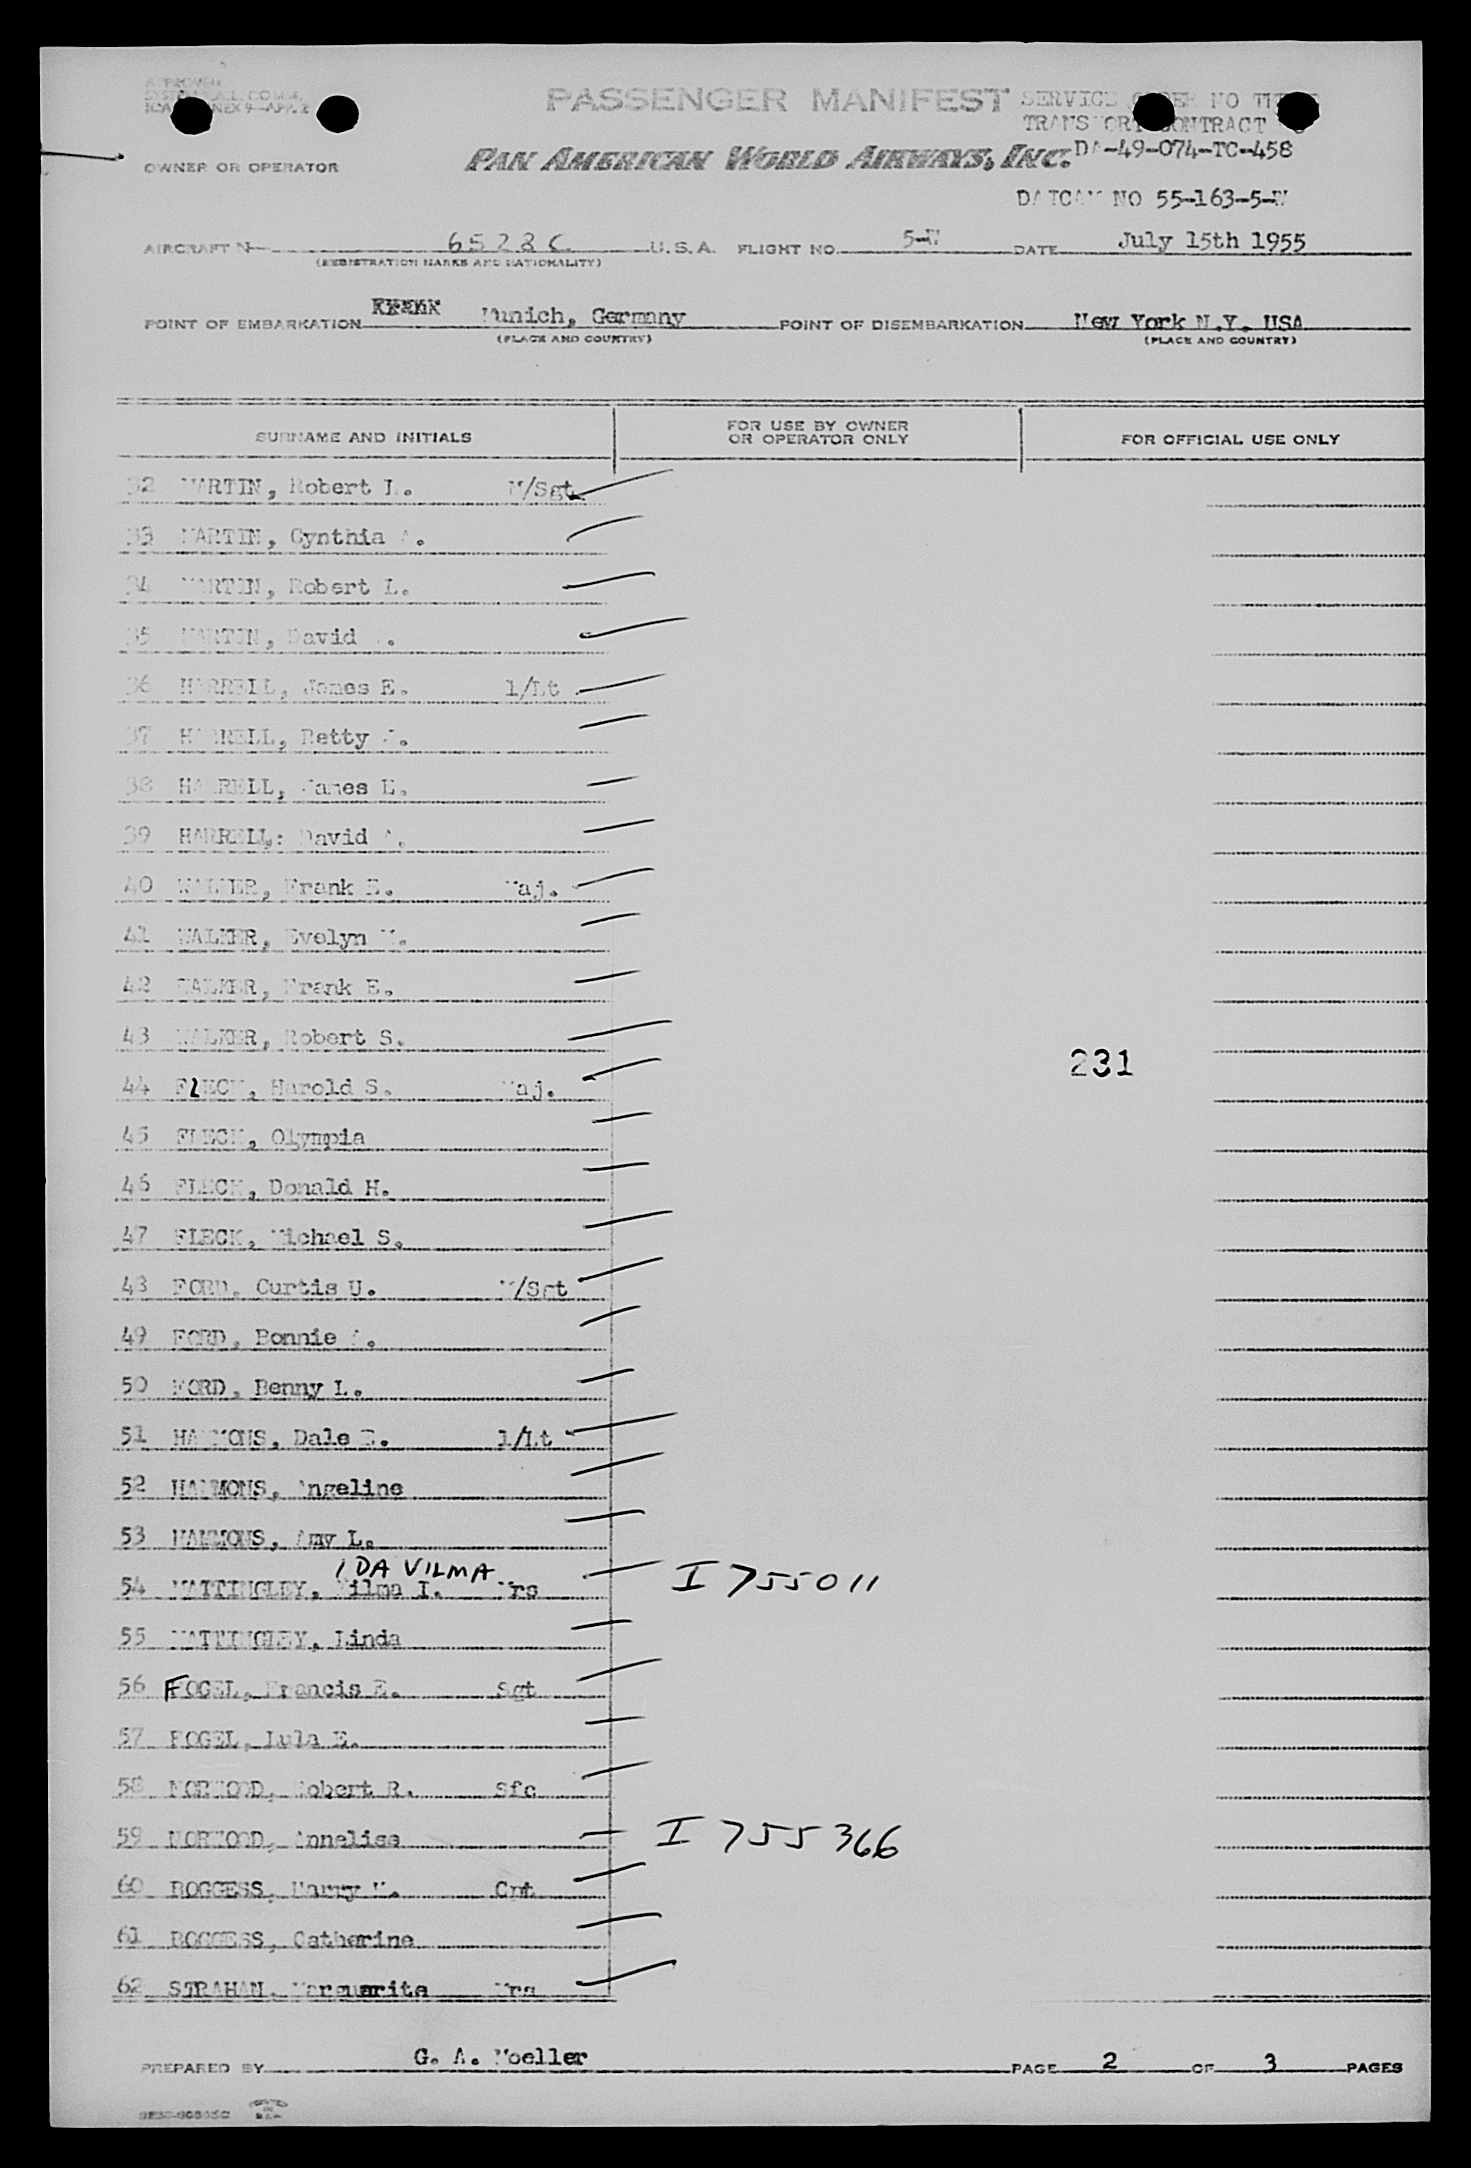 APPROVED
PASSENGER MANIFEST
SERVICE ORDER NO
TRANSPORT CONTRACT
DA-49-074-TC-458
OWNER OR OPERATOR
PAN AMERICAN WORLD AIRWAYS, INC.
NO 55-163-5-W
AIRCRAFT N 6528C U.S.A. FLIGHT NO. 5-W DATE July 15th 1955
(REGISTRATION MARKS AND NATIONALITY)
POINT OF EMBARKATION Munich, Germany POINT OF DISEMBARKATION New York N.Y. USA
(PLACE AND COUNTRY) (PLACE AND COUNTRY)
SURNAME AND INITIALS
FOR USE BY OWNER
OR OPERATOR ONLY
FOR OFFICIAL USE ONLY
32 MARTIN, Robert L. M/Sgt
33 MARTIN, Cynthia A.
34 MARTIN, Robert L.
35 MARTIN, David
36 HARRELL, James E. 1/Lt
37 HARRELL, Betty J.
38 HARRELL, James L.
39 HARRELL: David A.
40 WALKER, Frank E. Maj.
41 WALKER, Evelyn M.
42 WALKER, Frank E.
43 WALKER, Robert S.
231
44 FLECK, Harold S. Maj.
45 FLECK, Olympia
46 FLECK, Donald H.
47 FLECK, Michael S.
48 FORD, Curtis U. M/Sgt
49 FORD, Bonnie A.
50 FORD, Benny L.
51 HAMMONS, Dale E. 1/Lt
52 HAMMONS, Angeline
53 HAMMONS, Amy L.
IDA VILMA
54 MATTINGLEY, Vilma I. Mrs I 755011
55 MATTINGLEY, Linda
56 FOGEL, Francis E. Sgt
57 FOGEL, Lula E.
58 NORWOOD, Robert R. Sfc
59 NORWOOD, Annelise I 755366
60 BOGGESS, Harry M. Cpt
61 BOGGESS, Catherine
62 STRAHAN, Marguerite Mrs
PREPARED BY G. A. Moeller PAGE 2 OF 3 PAGES